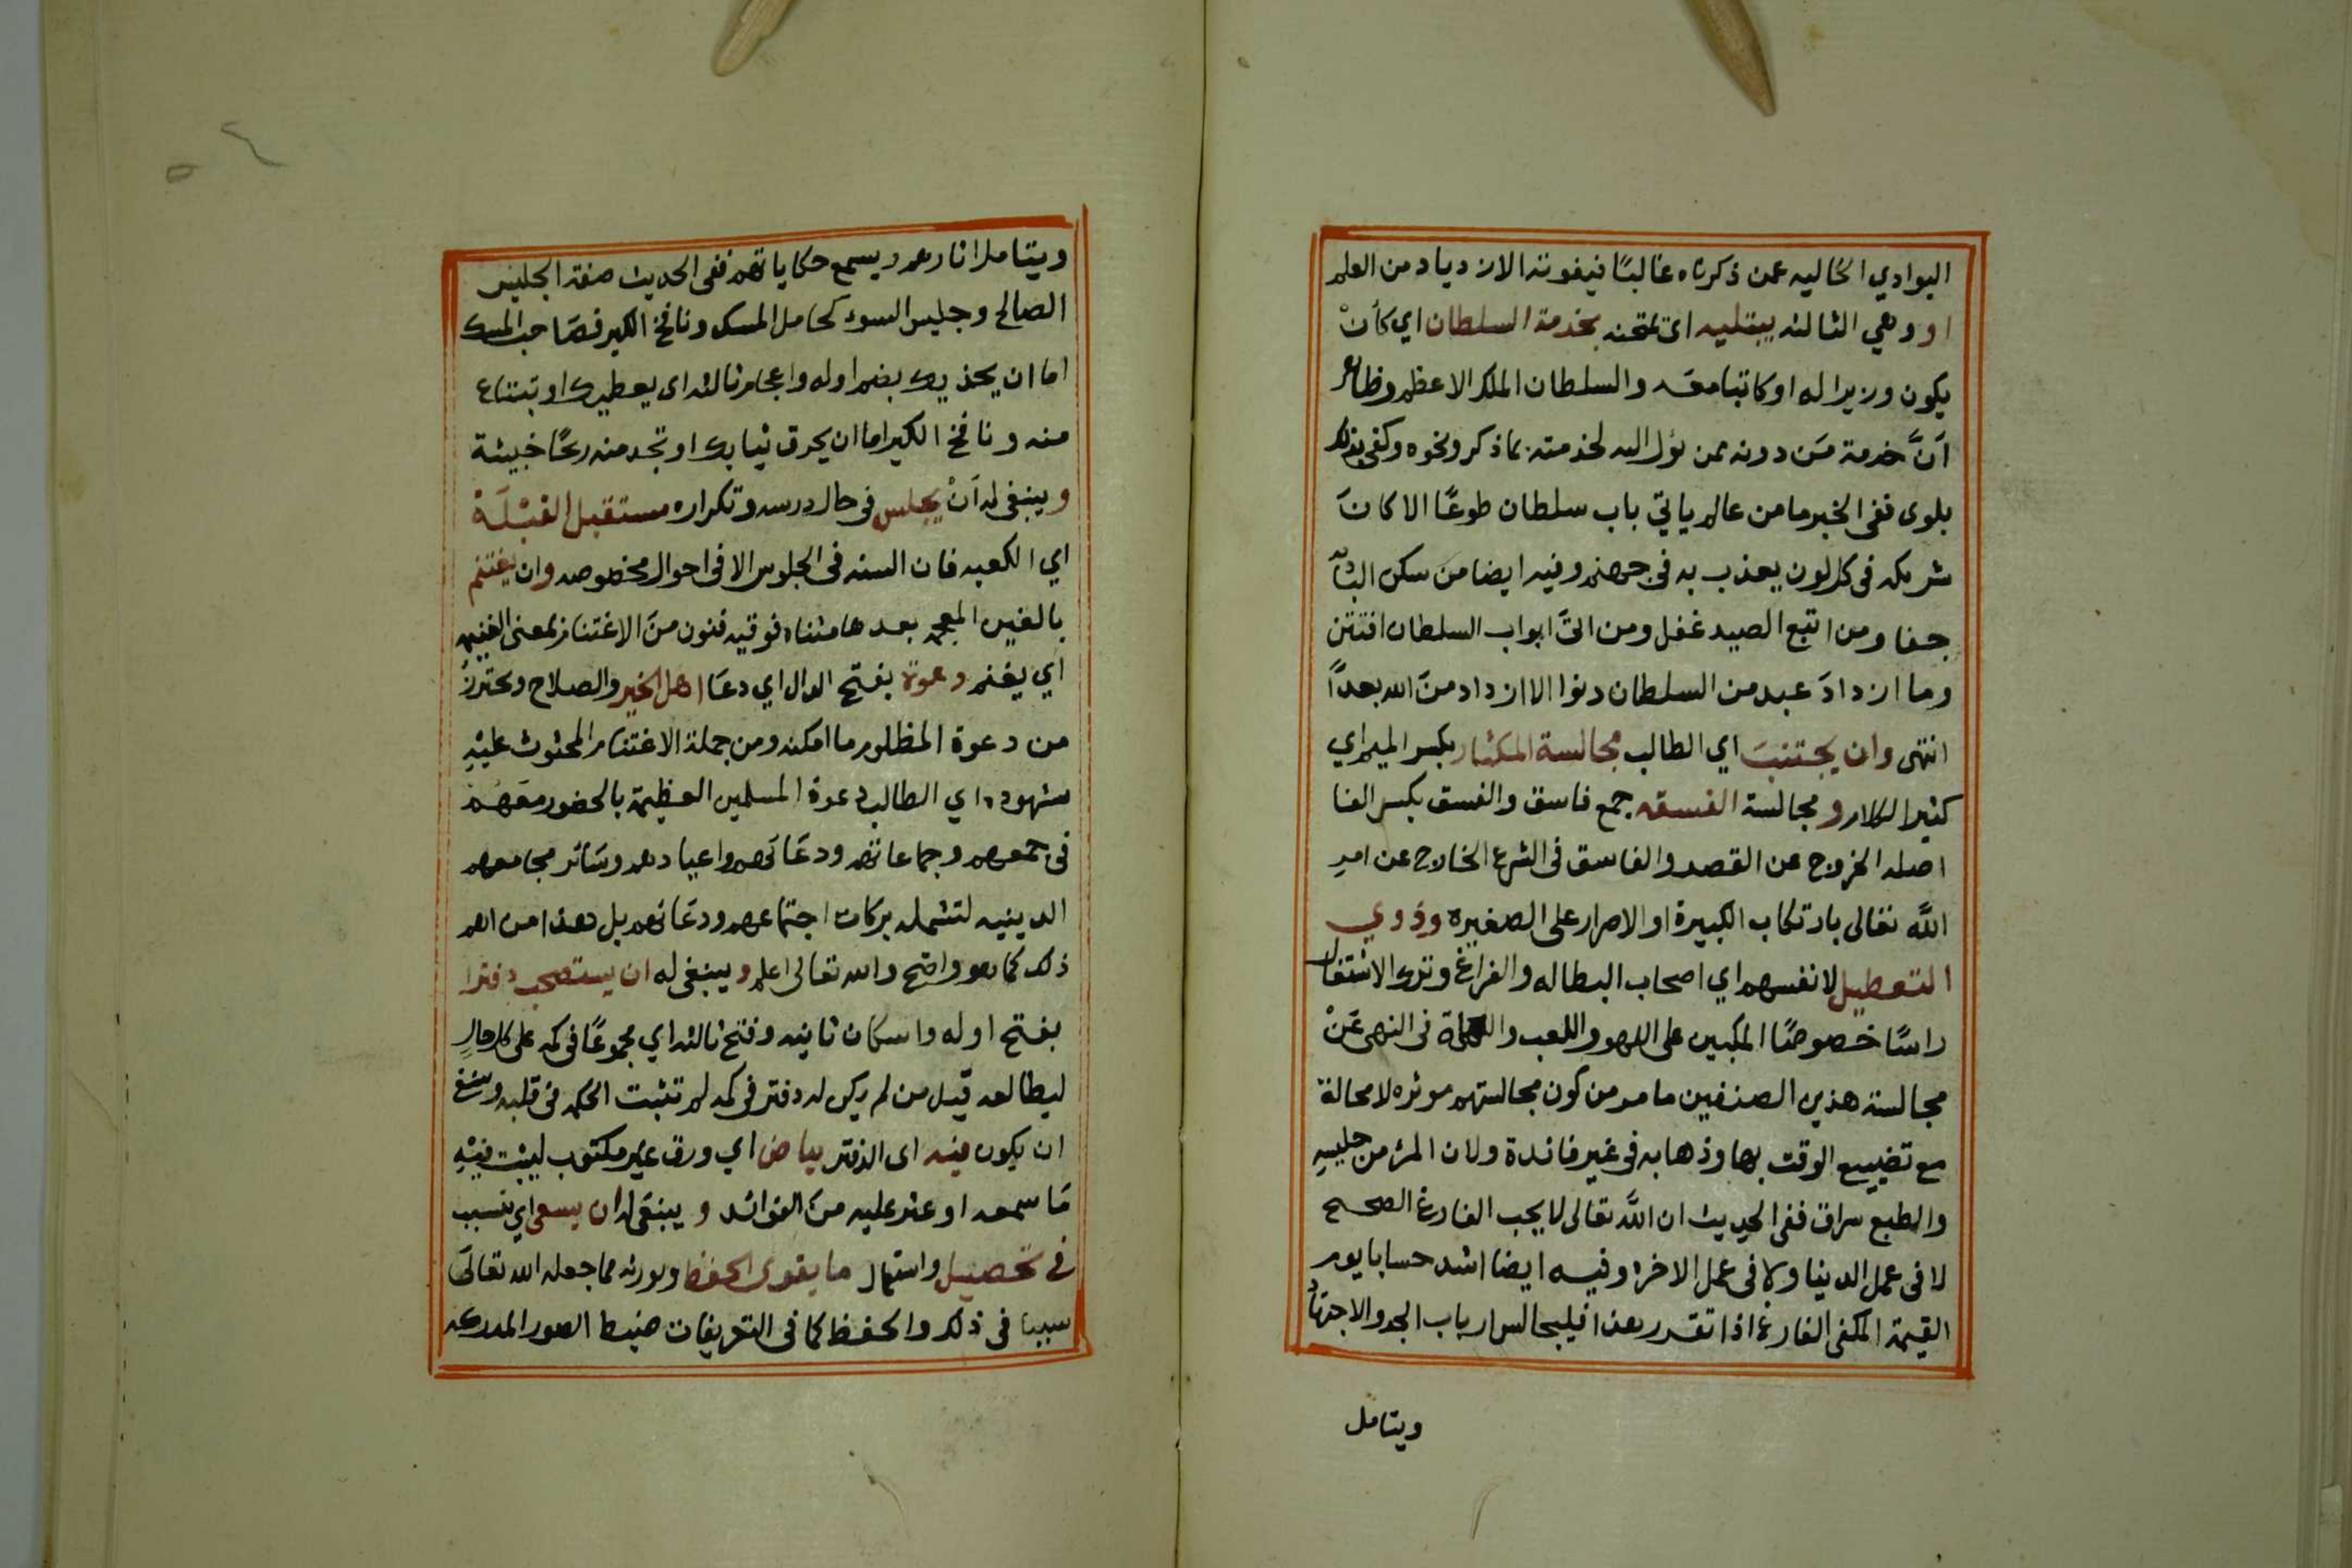 البوادي الخاليه عمن ذكرناه غالبًا فيفوته الازدياد من العلم
او وهي الثالثه يبتليه اي يمتحنه بخدمة السلطان اي كأنْ
يكون وزيرا له او كاتبا معه والسلطان الملك الاعظم وظاهر
اَنَّ خدمة مَن دونه ممن يؤل اليه لخدمته بما ذكر ونحوه وكفى بذلك
بلوى ففى الخبر ما من عالم ياتي باب سلطان طوعًا الا كانَ
شريكه فى كل لون يعذب به فى جهنم وفيه ايضا من سكن الباديه
جفا ومن اتبع الصيد غفل ومن اتى ابواب السلطان افتتن
وما ازدادَ عبد من السلطان دنوا الا ازداد منَ الله بعداً
انتهى وان يجتنبَ اي الطالب مجالسة المكثار بكسر الميم اي
كثير الكلام و مجالسة الفسقه جمع فاسق والفسق بكسر الفا
اصله الخروج عن القصد والفاسق فى الشرع الخارج عن امرِ
اللَّه تعالى بارتكاب الكبيرة او الاصرار على الصغيره وذوي
التعطيل لانفسهم اي اصحاب البطاله والفراغ وترك الاشتغال
راسًا خصوصًا المكبين على اللهو واللعب فى النهى عَنْ
مجالسة هذين الصنفين ما مر من كون مجالستهم موثره لا محالة
مع تضييع الوقت بها وذهابه فى غير فائدة ولان المرء من جليسِه
والطبع سراق ففى الحديث ان اللَّه تعالى لا يحب الفارغ الصحيح
لا فى عمل الدنيا ولا فى عمل الاخرة وفيه ايضا اشد حسابا يوم
القيمة المكفى الفارغ اذا تقرر هذا فليجالس ارباب الجد والاجتهاد
ويتامل
ويتامل اثارهم ويسمع حكاياتهم ففى الحديث صفة الجليس
الصالح وجليس السوء كحامل المسك ونافخ الكير فصَاحب المسك
اما ان يحذيك بضم اوله واعجام ثالثه اى يعطيك او تبتاع
منه ونافخ الكير اما ان يحرق ثيابك او تجد منه ريحًا خبيثة
وينبغى له اَنْ يجلس فى حال درسه وتكراره مستقبل القبْلَةْ
اي الكعبه فان السنه فى الجلوس الا فى احوال مخصوصه وان يغتنم
بالغين المعجمه بعدها مثناه فوقيه فنون منَ الاغتنام بمعنى الغنيمه
اي يغنم دعوة بفتح الدال اي دعَا اهل الخير والصلاح ويحترزُ
من دعوة المظلوم ما امكنه ومن جملة الاغتنام المحثوث عليْهِ
شهوده اي الطالب دعوة المسلمين العظيمة بالحضور معَهُمْ
فى جمعهم وجماعاتهم ودعَائهم واعيادهم وسَائر مجامعهم
الدينيه لتشمله بركات اجتماعهم ودعَائهم بل هذا من اهم
ذلك كما هو واضح والله تعالى اعلم وينبغى له ان يستصحب دفترا
بفتح اوله واسكان ثانيه وفتح ثالثه اي مجموعًا فى كمه على كل حالٍ
ليطالعه قيل من لم يكن له دفتر فى كمه لم تثبت الحكمه فى قلبه وينبغى
ان يكون فيه اى الدفتر بياض اي ورق غير مكتوب ليثبت فيْهِ
مَا سمعه او عثر عليه منَ الفوائد و ينبغى له ان يسعى اي يتسبب
فى تحصيل واستعمال ما يقوى الحفظ ويورثه مما جعله الله تعالىَ
سببا فى ذلك والحفظ كما فى التعريفات ضبط الصور المدركه